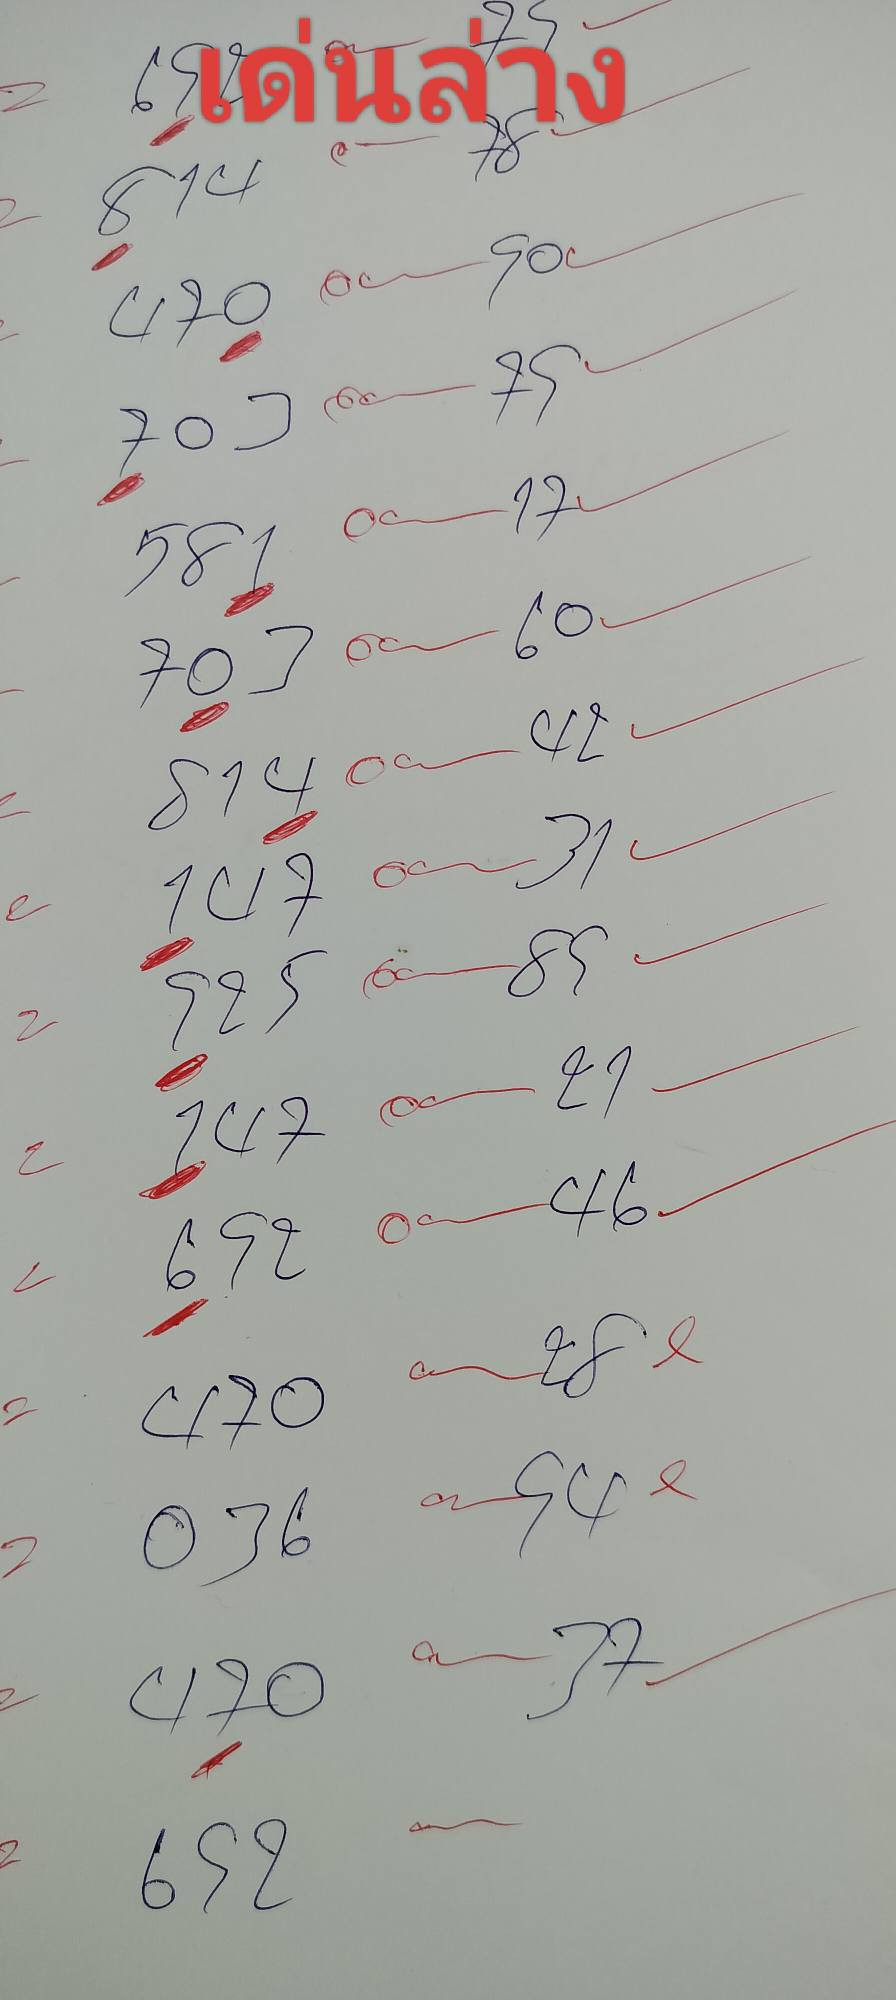 เด่นล่าง
692 79
814 78
470 90
703 79
581 17
703 60
814 42
147 31
925 89
147 21
692 46
470 28
036 94
470 37
692